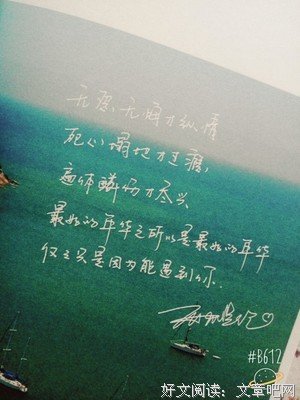 无愿无悔才纵情
死心塌地才过瘾,
遍体鳞伤才尽兴.
最好的年华之所以是最好的年华
仅仅只是因为能遇到你.
#B612
好文阅读：文章吧网